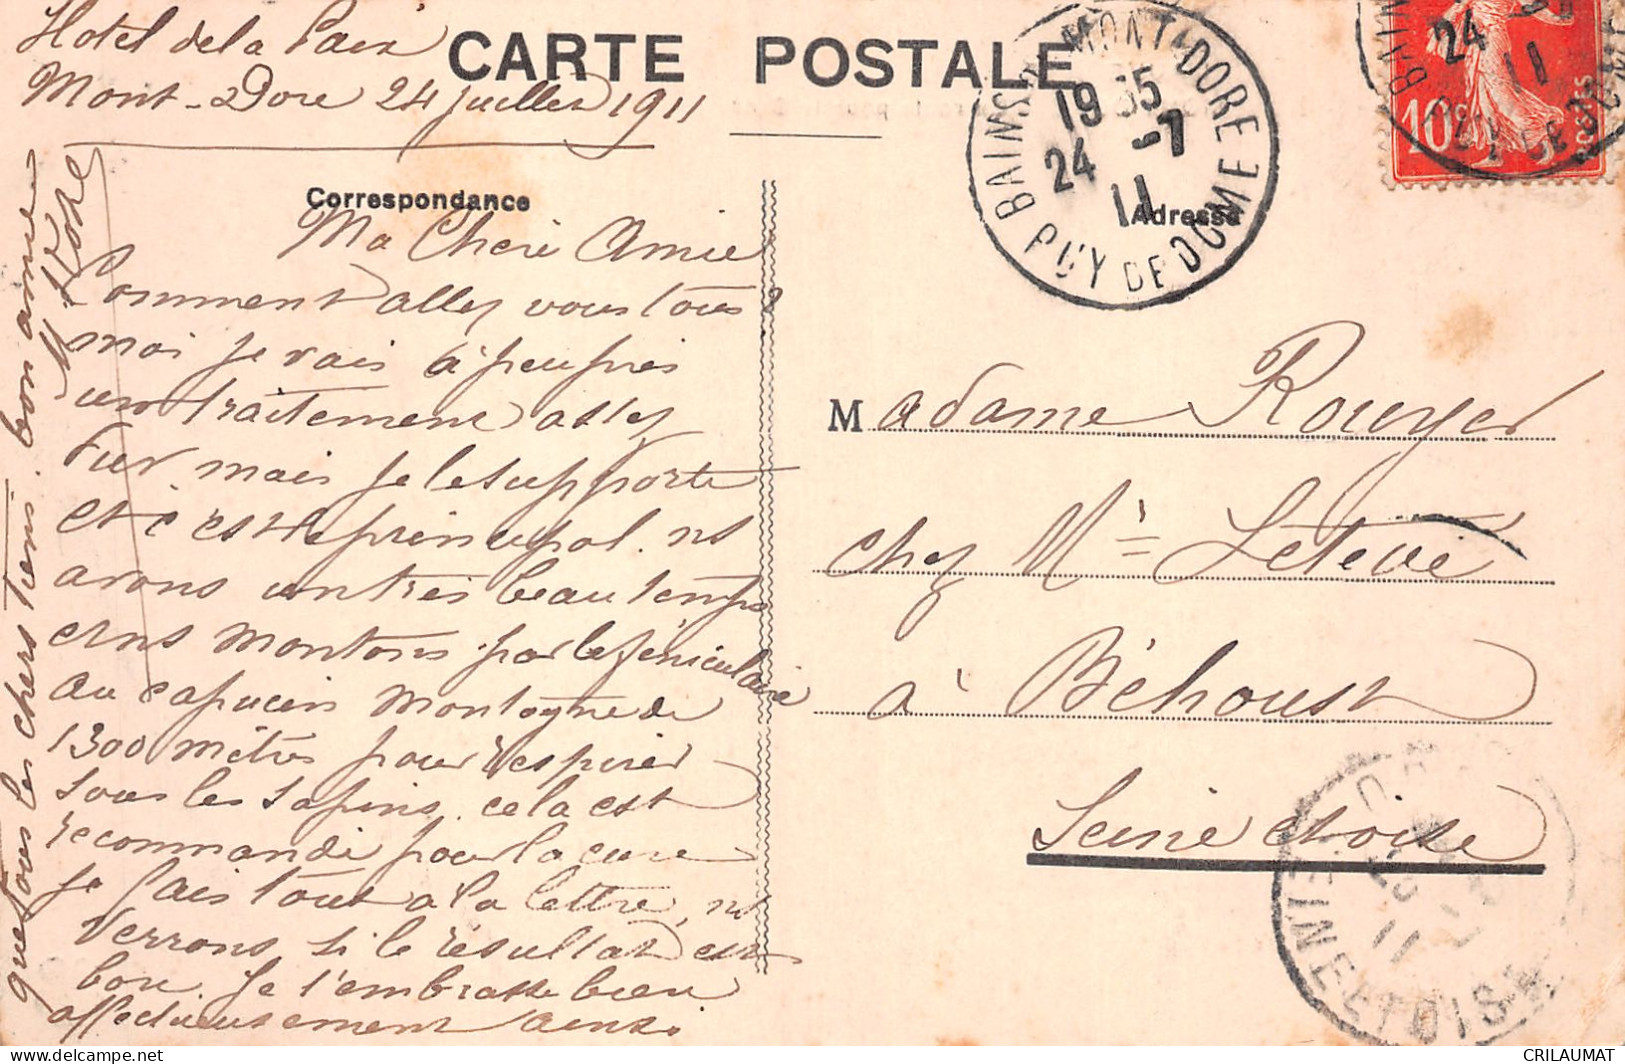 Hotel de la Paix
Mont-Dore 24 juillet 1911
CARTE POSTALE
Correspondance
Ma Cheri Amie
Comment allez vous tous ?
moi je vais à peu près
un traitement assez
dur mais je le supporte
et c'est le principal. ns
avons un très beau temps
et ns montons par le féniculaire
au capucin montagne de
1300 mètres pour respirer
sous les sapins. cela est
recommandé pour la cure
je fais tout à la lettre, ns
verrons si le résultat est
bon. Je t'embrasse bien
affectueusement ainsi
que tous les chers tiens. bon amie
BAINS DU MONT-DORE
19 35
24 -7
11
PUY DE DOME
Adresse
Madame Rouyer
chez Mr Létevé
à Béhoust
Seine et oise
10c
POSTES
24
11
SEINE-ET-OISE
11
CRILAUMAT